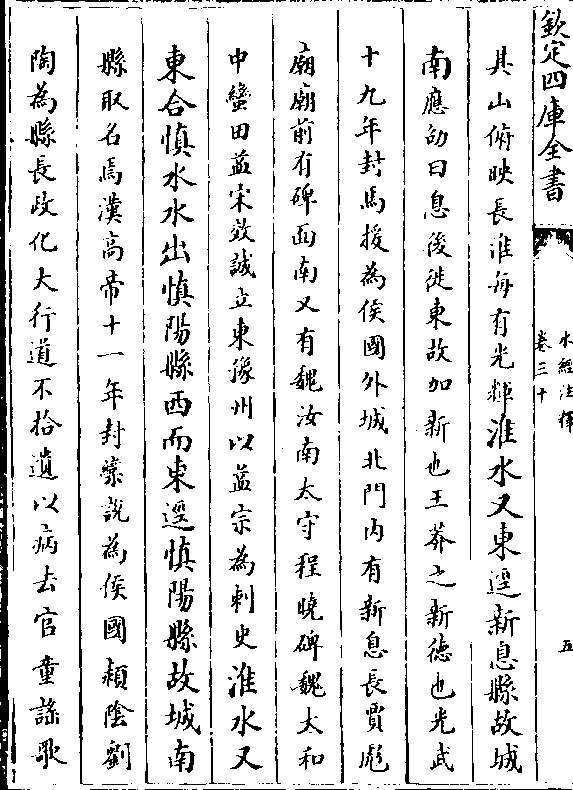 欽定四庫全書
水經注釋
卷三十
五
其山俯映長淮每有光輝淮水又東逕新息縣故城
南應劭曰息後徙東故加新也王莽之新德也光武
十九年封馬援為侯國外城北門内有新息長賈彪
廟廟前有碑面南又有魏汝南太守程曉碑魏太和
中蠻田益宋效誠立東豫州以益宗為刺史淮水又
東合慎水水出慎陽縣西而東逕慎陽縣故城南
縣取名焉漢高帝十一年封欒說為侯國潁陰劉
陶為縣長政化大行道不拾遺以病去官童謡歌